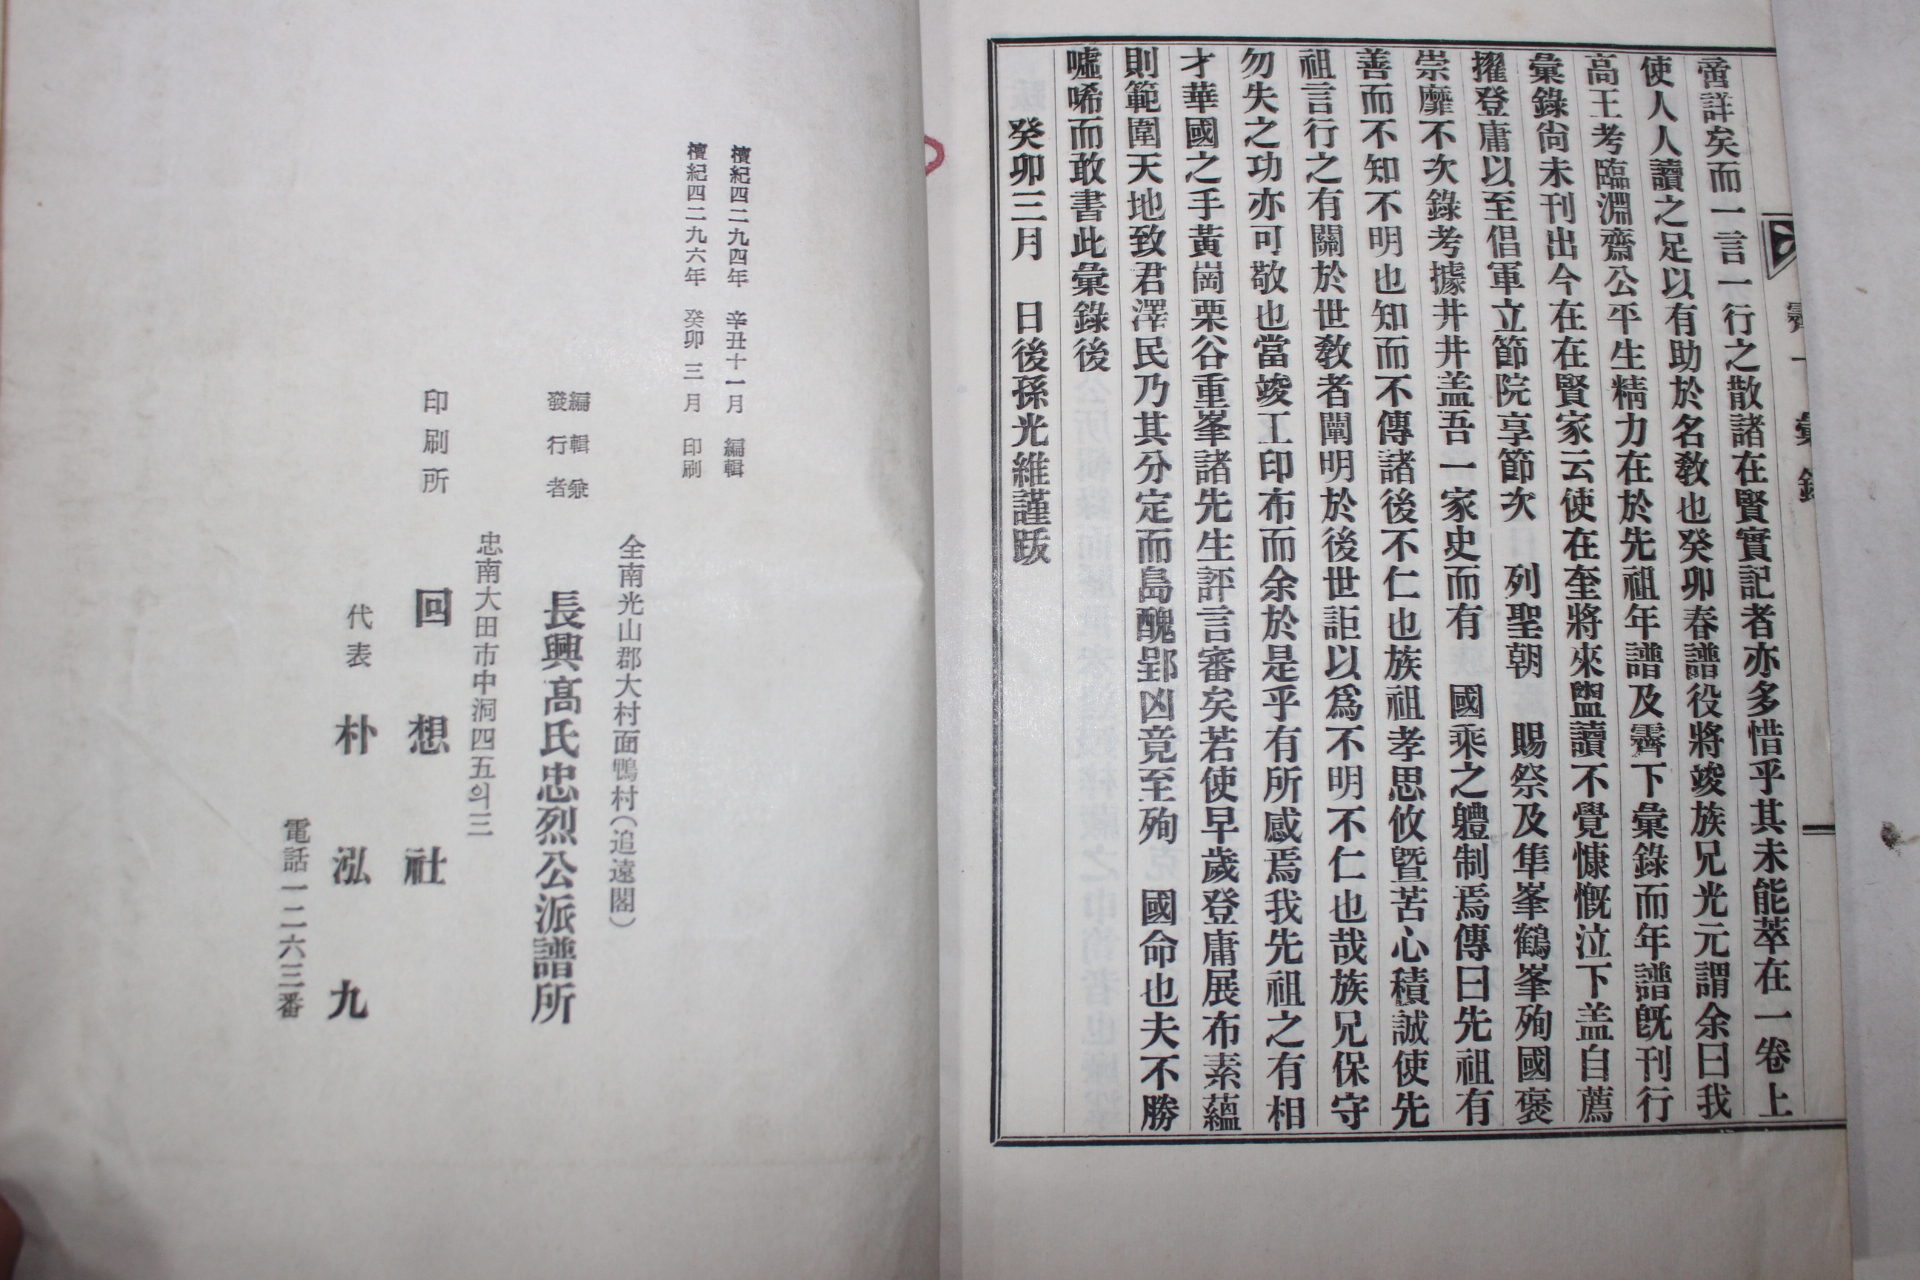 霽下彙錄
啻詳矣而一言一行之散諸在賢實記者亦多惜乎其未能萃在一卷上
使人人讀之足以有助於名敎也癸卯春譜役將竣族兄光元謂余曰我
高王考臨淵齋公平生精力在於先祖年譜及霽下彙錄而年譜旣刊行
彙錄尙未刊出今在在賢家云使在奎將來盥讀不覺慷慨泣下盖自薦
擢登庸以至倡軍立節院享節次 列聖朝 賜祭及隼峯鶴峯殉國褒
崇靡不次錄考據井井盖吾一家史而有 國乘之軆制焉傳曰先祖有
善而不知不明也知而不傳諸後不仁也族祖孝思攸曁苦心積誠使先
祖言行之有關於世敎者闡明於後世詎以爲不明不仁也哉族兄保守
勿失之功亦可敬也當竣工印布而余於是乎有所感焉我先祖之有相
才華國之手黃崗栗谷重峯諸先生評言審矣若使早歲登庸展布素蘊
則範圍天地致君澤民乃其分定而島醜郢凶竟至殉 國命也夫不勝
噓唏而敢書此彙錄後
癸卯三月 日後孫光維謹跋
檀紀四二九四年 辛丑十一月 編輯
檀紀四二九六年 癸卯三月 印刷
全南光山郡大村面鴨村(追遠閣)
編輯兼
發行者 長興高氏忠烈公派譜所
忠南大田市中洞四五의三
印刷所 回想社
代表 朴泓九
電話一二六三番